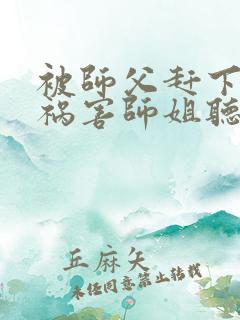 被師父赶下
祸害師姐聽
丘麻矢
未经同意禁止转载